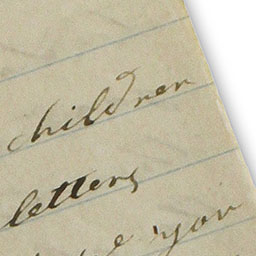 children
letters
you